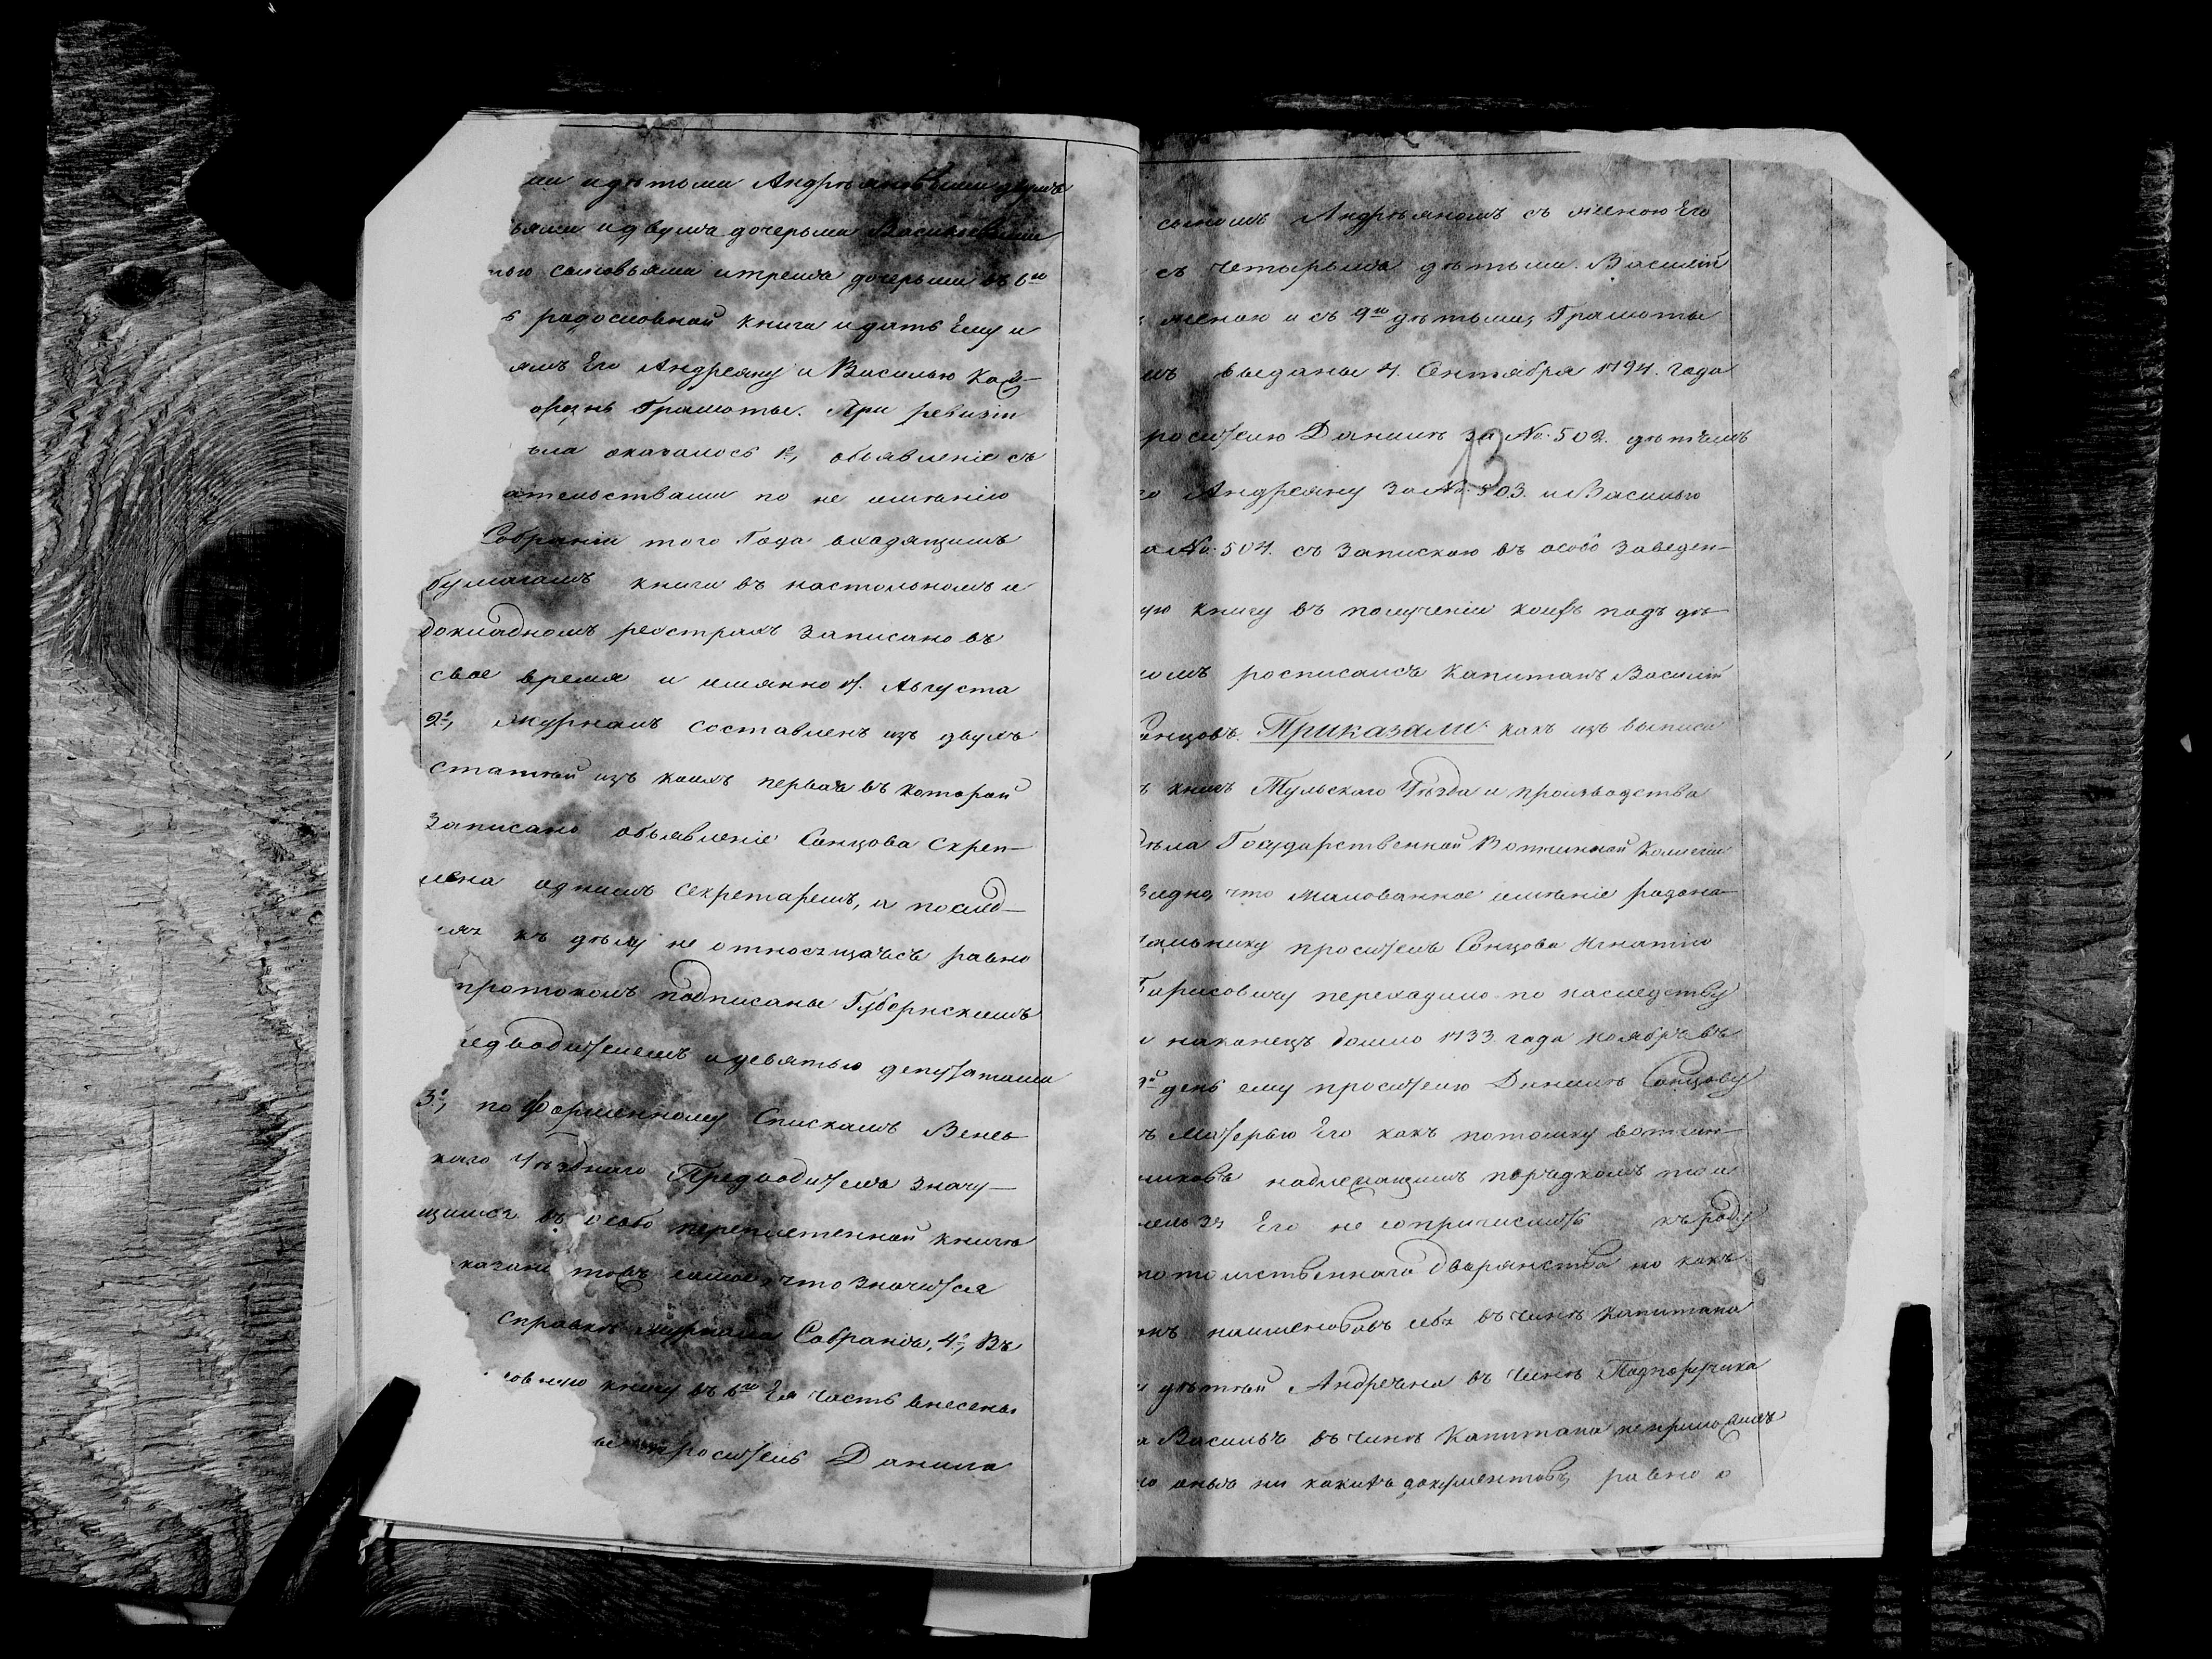 ми и дѣтьми Андреяновыми двумя
вьями и двумя дочерьми Васильевыми
тью сыновьями и тремя дочерьми въ 6ю
ь родословной книги и дать Ему и
ямъ Его Андреяну и Василью каж-
Грамоты. При ревизіи
ѣла оказалось 1е, объявленіе съ
ательствами по не имѣнію
Собраніи того Года входящимъ
бумагамъ книги въ настольномъ и
докладномъ реэстрахъ записано въ
свое время и имянно 17. Августа
2е, Журналъ составленъ изъ двухъ
статей изъ коихъ первая въ которой
записано объявленіе Сонцова скреп-
лена однимъ секретаремъ, а послед-
няя къ дѣлу не относящаясь равно
протоколъ подписаны Губернскимъ
редводителемъ и девятью депутатами
3е, по Форменному Спискамъ Венев-
каго Уѣзднаго Предводителя значу-
щимся въ особо переплетенной книгѣ
казано тожъ самое, что значится
справкѣ журнала Собранія, 4е, Въ
овную книгу въ 6ю Ея часть внесены
проситель Данила
сыномъ Андреяномъ съ женою Его
съ четырьмя дѣтьми. Василій
женою и съ 9ю дѣтьми, Грамоты
мъ выданы 4. Сентября 1794. Года
росителю Данилѣ за №. 502. дѣтямъ
го Андреяну за №. 503. и Василью
а №. 504. съ запискою въ особо заведен-
ую книгу въ полученіи коихъ подъ дѣ-
ломъ росписался Капитанъ Василій
Сонцовъ. Приказали: какъ изъ выписи
ъ книгъ Тульскаго Уѣзда и производства
дѣла Государственной Вотчинной Колегіи
видно, что жалованное имѣніе родона-
чальнику просителя Сонцова Игнатію
Борисовичу переходило по наследству
и наконецъ дошло 1733. года ноября въ
9й день ему просителю Данилѣ Сонцову
ъ Матерью Его какъ потомку вотчин-
никовъ надлежащимъ порядкомъ то и
нельзя Его не сопричислить къ роду
потомственнаго Дворянства но какъ
онъ наименовавъ себя въ чинѣ Капитана
и дѣтей Андреяна въ чинѣ Подпоручика
а Василья въ чинѣ Капитана не приложилъ
о оныя ни какихъ документовъ, равно о
13